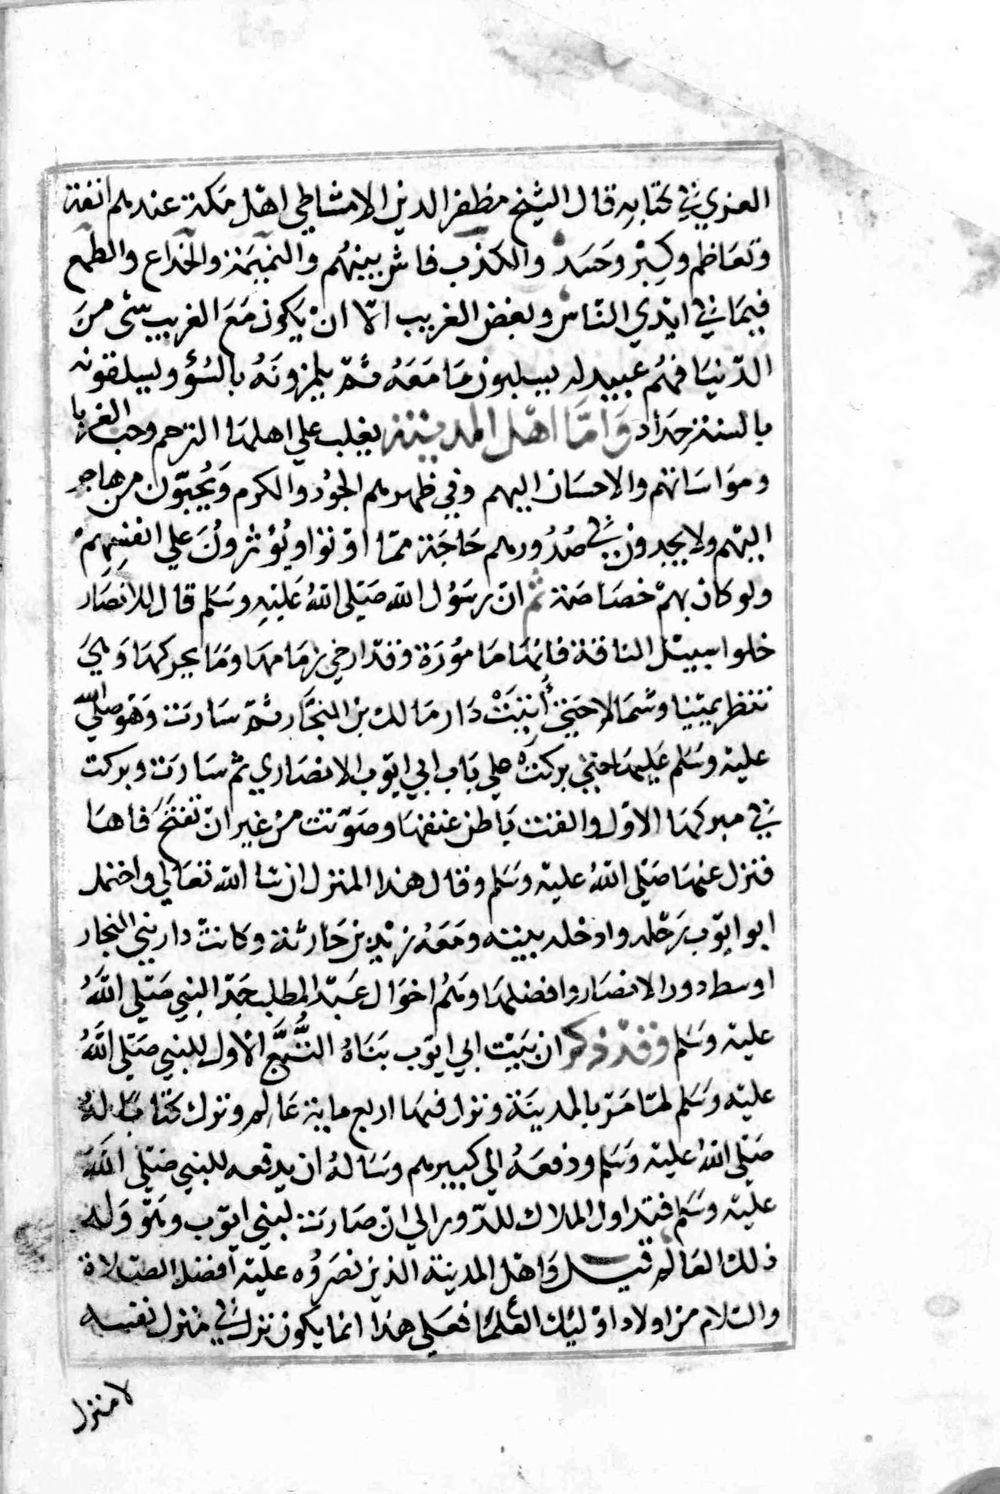 العزي في كتابه قال الشيخ مظفر الدين الامشاطي اهل مكة عندهم انفة
وتعاظم وكبر وحسد والكذب فاش بينهم والنميمة والخداع والطمع
فيما في ايدي الناس وبغض الغريب الا ان يكون مع الغريب شي من
الدنيا فهم عبيد له يسلبون ما معه ثم يلمزونه بالسوء ويسلقونه
بالسنة حداد واما اهل المدينة يغلب على اهلها الترحم وحب الغربا
ومواساتهم والاحسان اليهم وفي ظهورهم الجود والكرم ويحبون من هاجر
اليهم ولا يجدون في صدورهم حاجة مما اوتوا ويؤثرون علي انفسهم
ولو كان بهم خصاصة ثم ان رسول الله صلى الله عليه وسلم قال للانصار
خلوا سبيل الناقة فانها مامورة وقد ارخي زمامها وما يحركها وهي
تنظر يمينا وشمالا حتى أتت دار مالك بن النجار ثم سارت وهو صلى الله
عليه وسلم عليها حتي بركت علي باب ابي ايوب الانصاري ثم سارت وبركت
في مبركها الاول والقت باطن عنقها وصوتت من غير ان تفتح فاها
فنزل عنها صلى الله عليه وسلم وقال هذا المنزل ان شا الله تعالي واحتمل
ابو ايوب رحله وادخله بيته ومعه زيد بن حارثة وكانت دار بني النجار
اوسط دور الانصار وافضلها وهم اخوال عبد المطلب جد النبي صلى الله
عليه وسلم وقد ذكر ان بيت ابي ايوب بناه التبع الاول للنبي صلى الله
عليه وسلم لما مر بالمدينة ونزل فيها اربع ماية عالم وترك كتابا له
صلى الله عليه وسلم ودفعه الي كبيرهم وساله ان يدفعه للنبي صلى الله
عليه وسلم فتداول الملاك للدور الي ان صارت لبني ايوب وهو ولد
ذلك العالم قيل واهل المدينة الذين نصروه عليه أفضل الصلاة
والسلام من اولاد اوليك العلما فعلي هذا انما يكون نزل في منزل نفسه
لا منزل